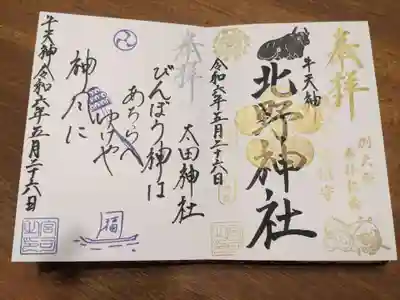 奉拝
牛天神
北野神社
令和六年五月二十六日
奉拝
太田神社
びんぼう神は
あちらへ
ゆけや
福
牛天神令和六年五月二十六日